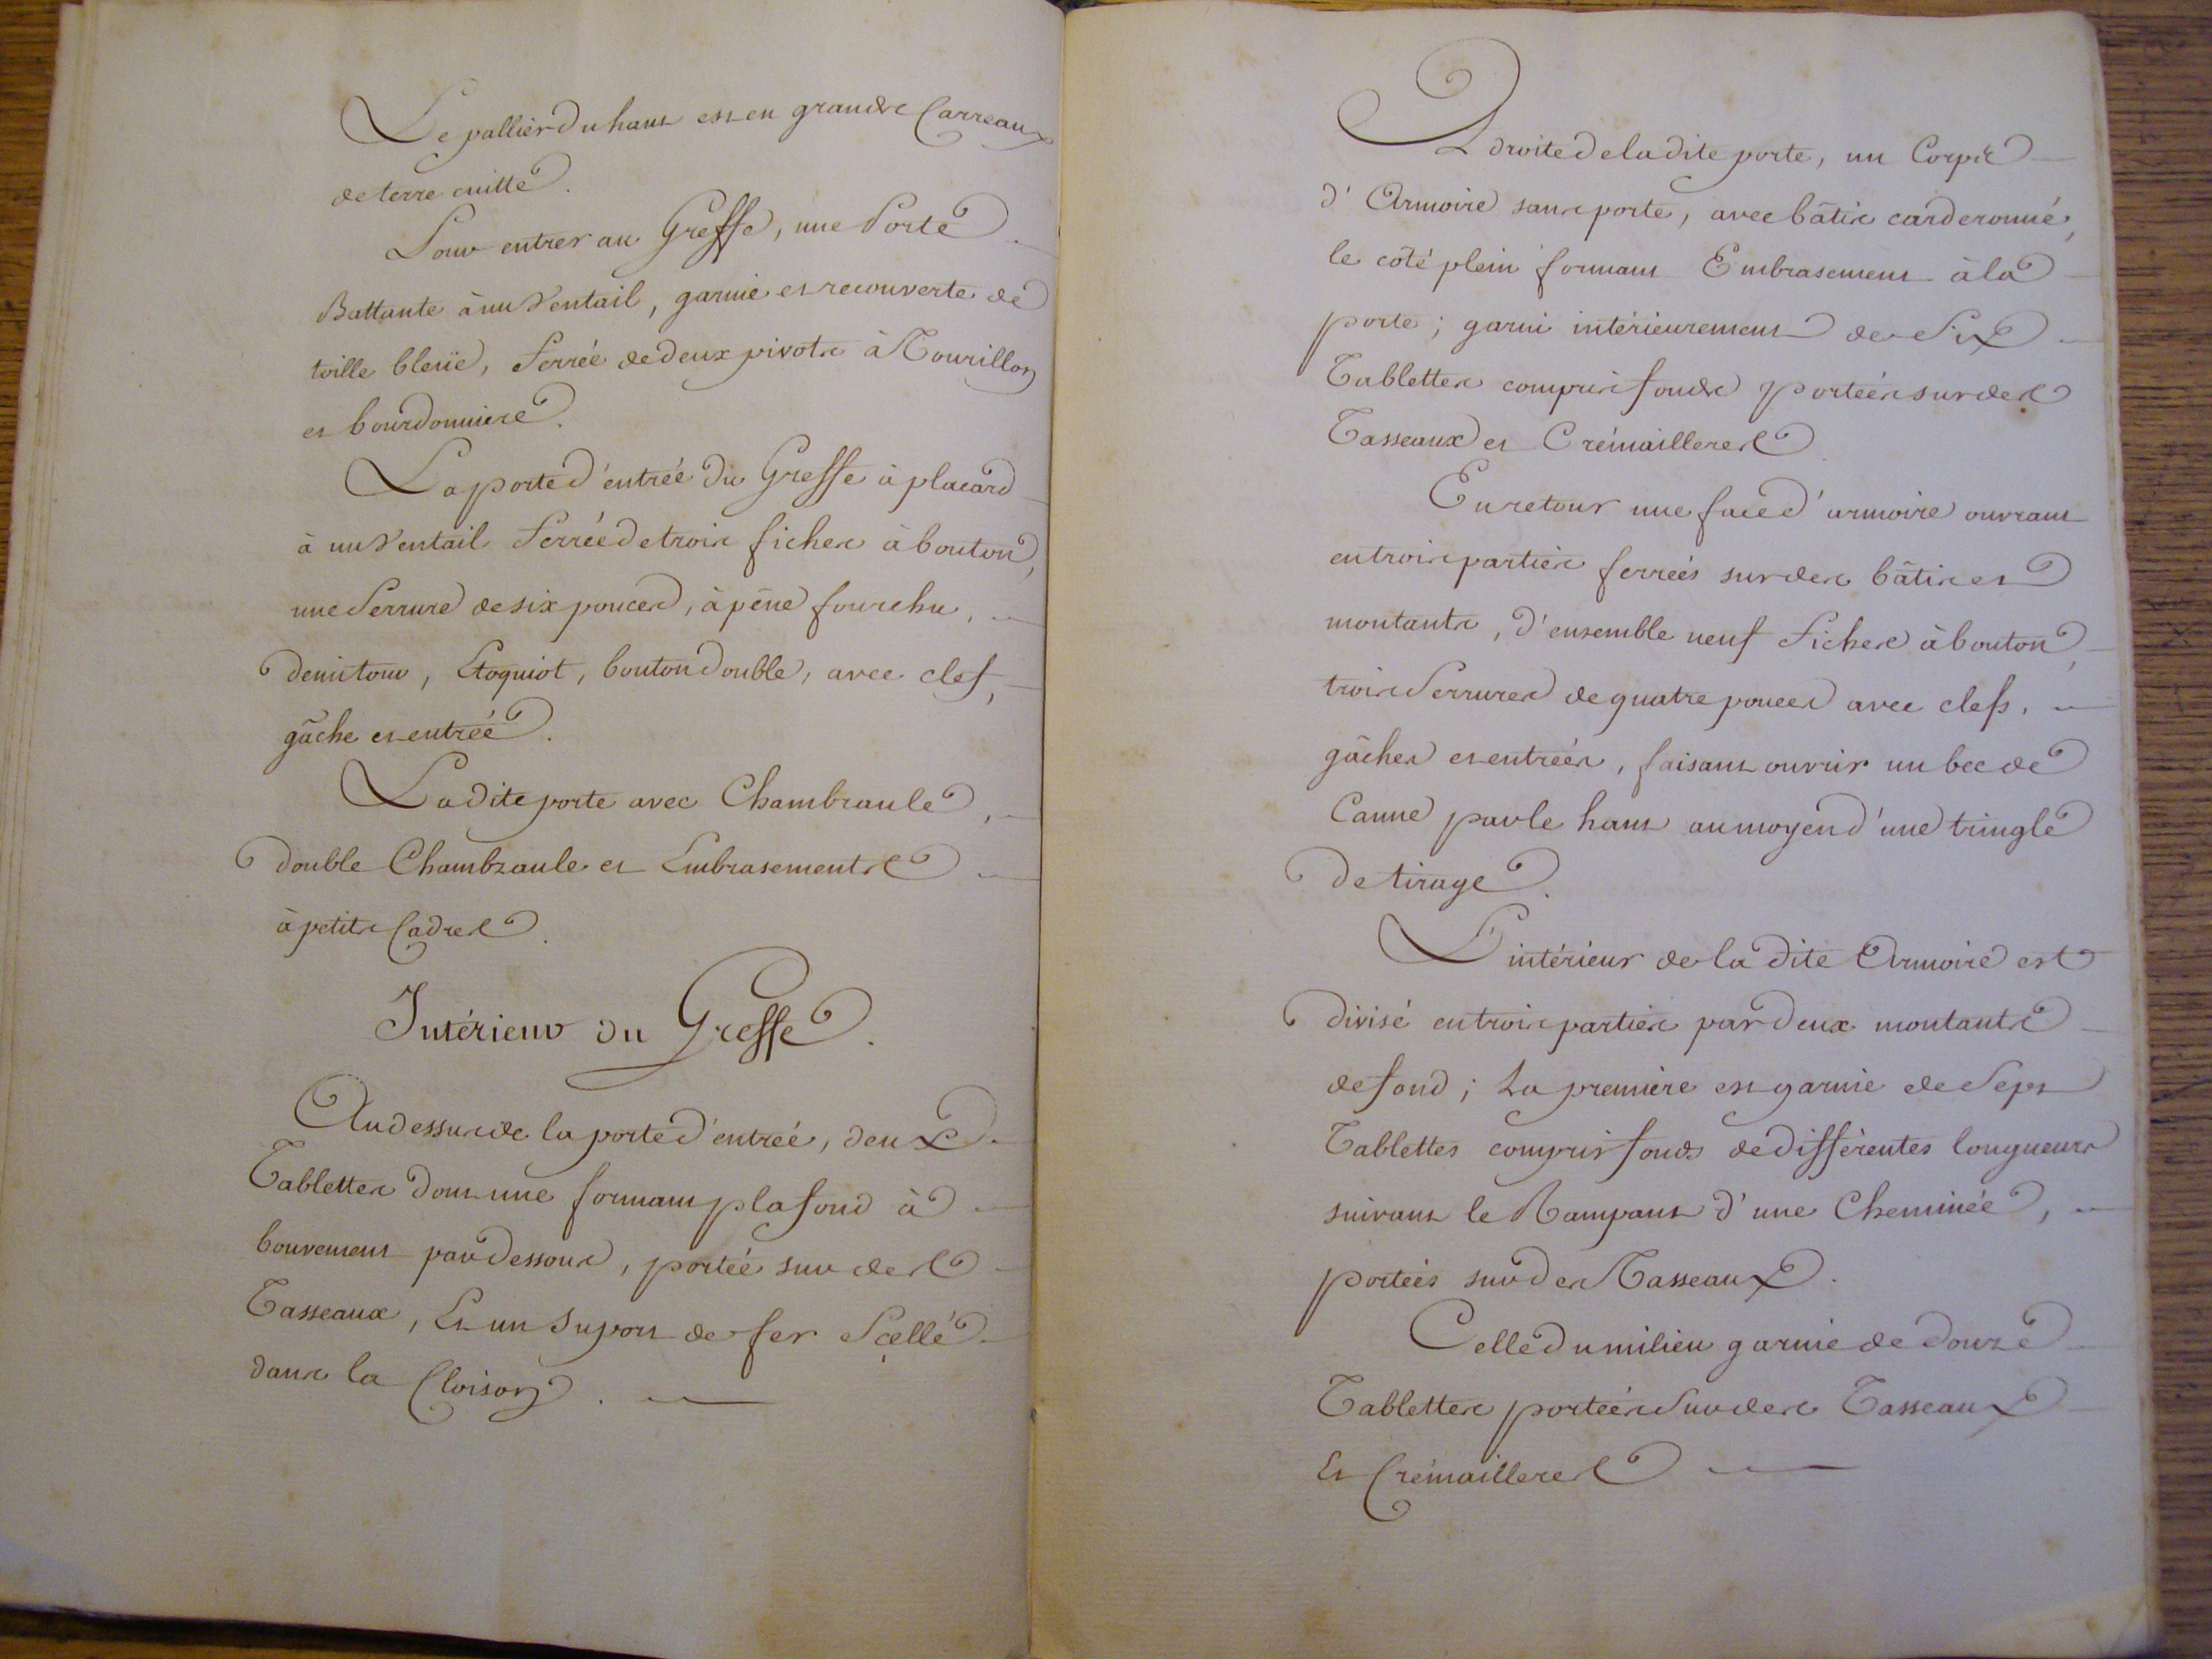 Le pallier du haut est en grands Carreaux
de terre cuitte.
Pour entrer au Greffe, une Porte
Battante à un Ventail, garnie et recouverte de
toille bleüe, ferrée de deux pivots à Tourillon
et bourdonniere.
La porte d'entrée du Greffe à placard
à un Ventail ferrée de trois fiches à bouton,
une Serrure de six pouces, à pêne fourchu,
demi tour, Etoquiot, bouton double, avec clef,
gâche et entrée.
La dite porte avec Chambranle,
double Chambranle et Embrasements
à petits Cadres.
Intérieur du Greffe.
Au dessus de la porte d'entrée, deux
Tablettes dont une formant plafond à
bouvement par dessous, portée sur des
Tasseaux, Et un Suport de fer Scellé
dans la Cloison.
A droite de la dite porte, un Corps
d'Armoire sans porte, avec bâtis carderonné,
le côté plein formant Embrasement à la
porte; garni intérieurement de Six
Tablettes compris fonds portées sur des
Tasseaux et Crémailleres
En retour une face d'armoire ouvrant
en trois parties ferrées sur des bâtis et
montants, d'ensemble neuf fiches à bouton,
trois Serrures de quatre pouces avec clefs,
gâches et entrées, faisant ouvrir un bec de
Canne par le haut au moyen d'une tringle
de tirage.
L'intérieur de la dite Armoire est
divisé en trois parties par deux montants
de fond; La premiere est garnie de Sept
Tablettes compris fonds de différentes longueurs
suivant le Rampant d'une Cheminée,
portées sur des Tasseaux.
Celle du milieu garnie de douze
Tablettes portées Sur des Tasseaux
Et Crémailleres